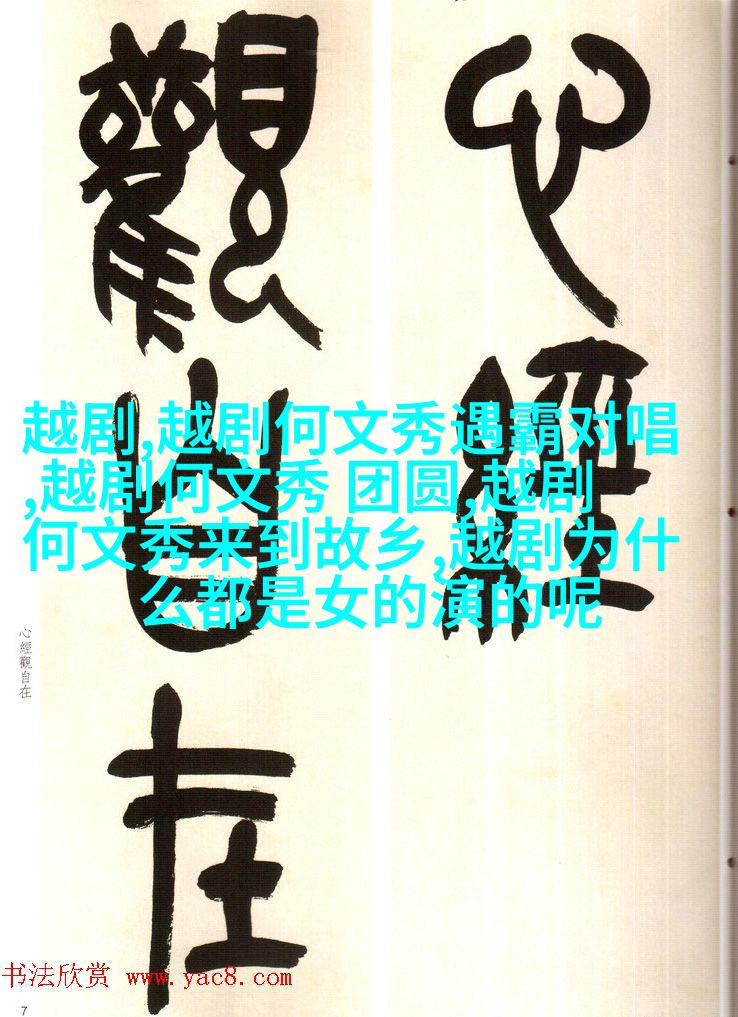 心經
觀自在
越剧,越剧何文秀遇霸对唱
,越剧何文秀 团圆,越剧
何文秀来到故乡,越剧为什
么都是女的演的呢
心經觀自在
书法欣赏 www.yac8.com
7